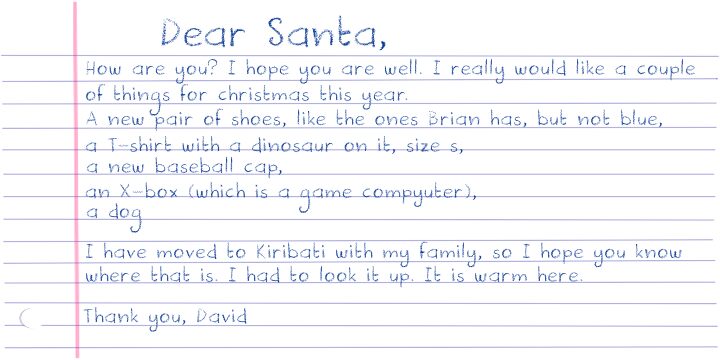 Dear Santa,
How are you? I hope you are well. I really would like a couple
of things for christmas this year.
A new pair of shoes, like the ones Brian has, but not blue,
a T-shirt with a dinosaur on it, size s,
a new baseball cap,
an X-box (which is a game compyuter),
a dog
I have moved to Kiribati with my family, so I hope you know
where that is. I had to look it up. It is warm here.
Thank you, David